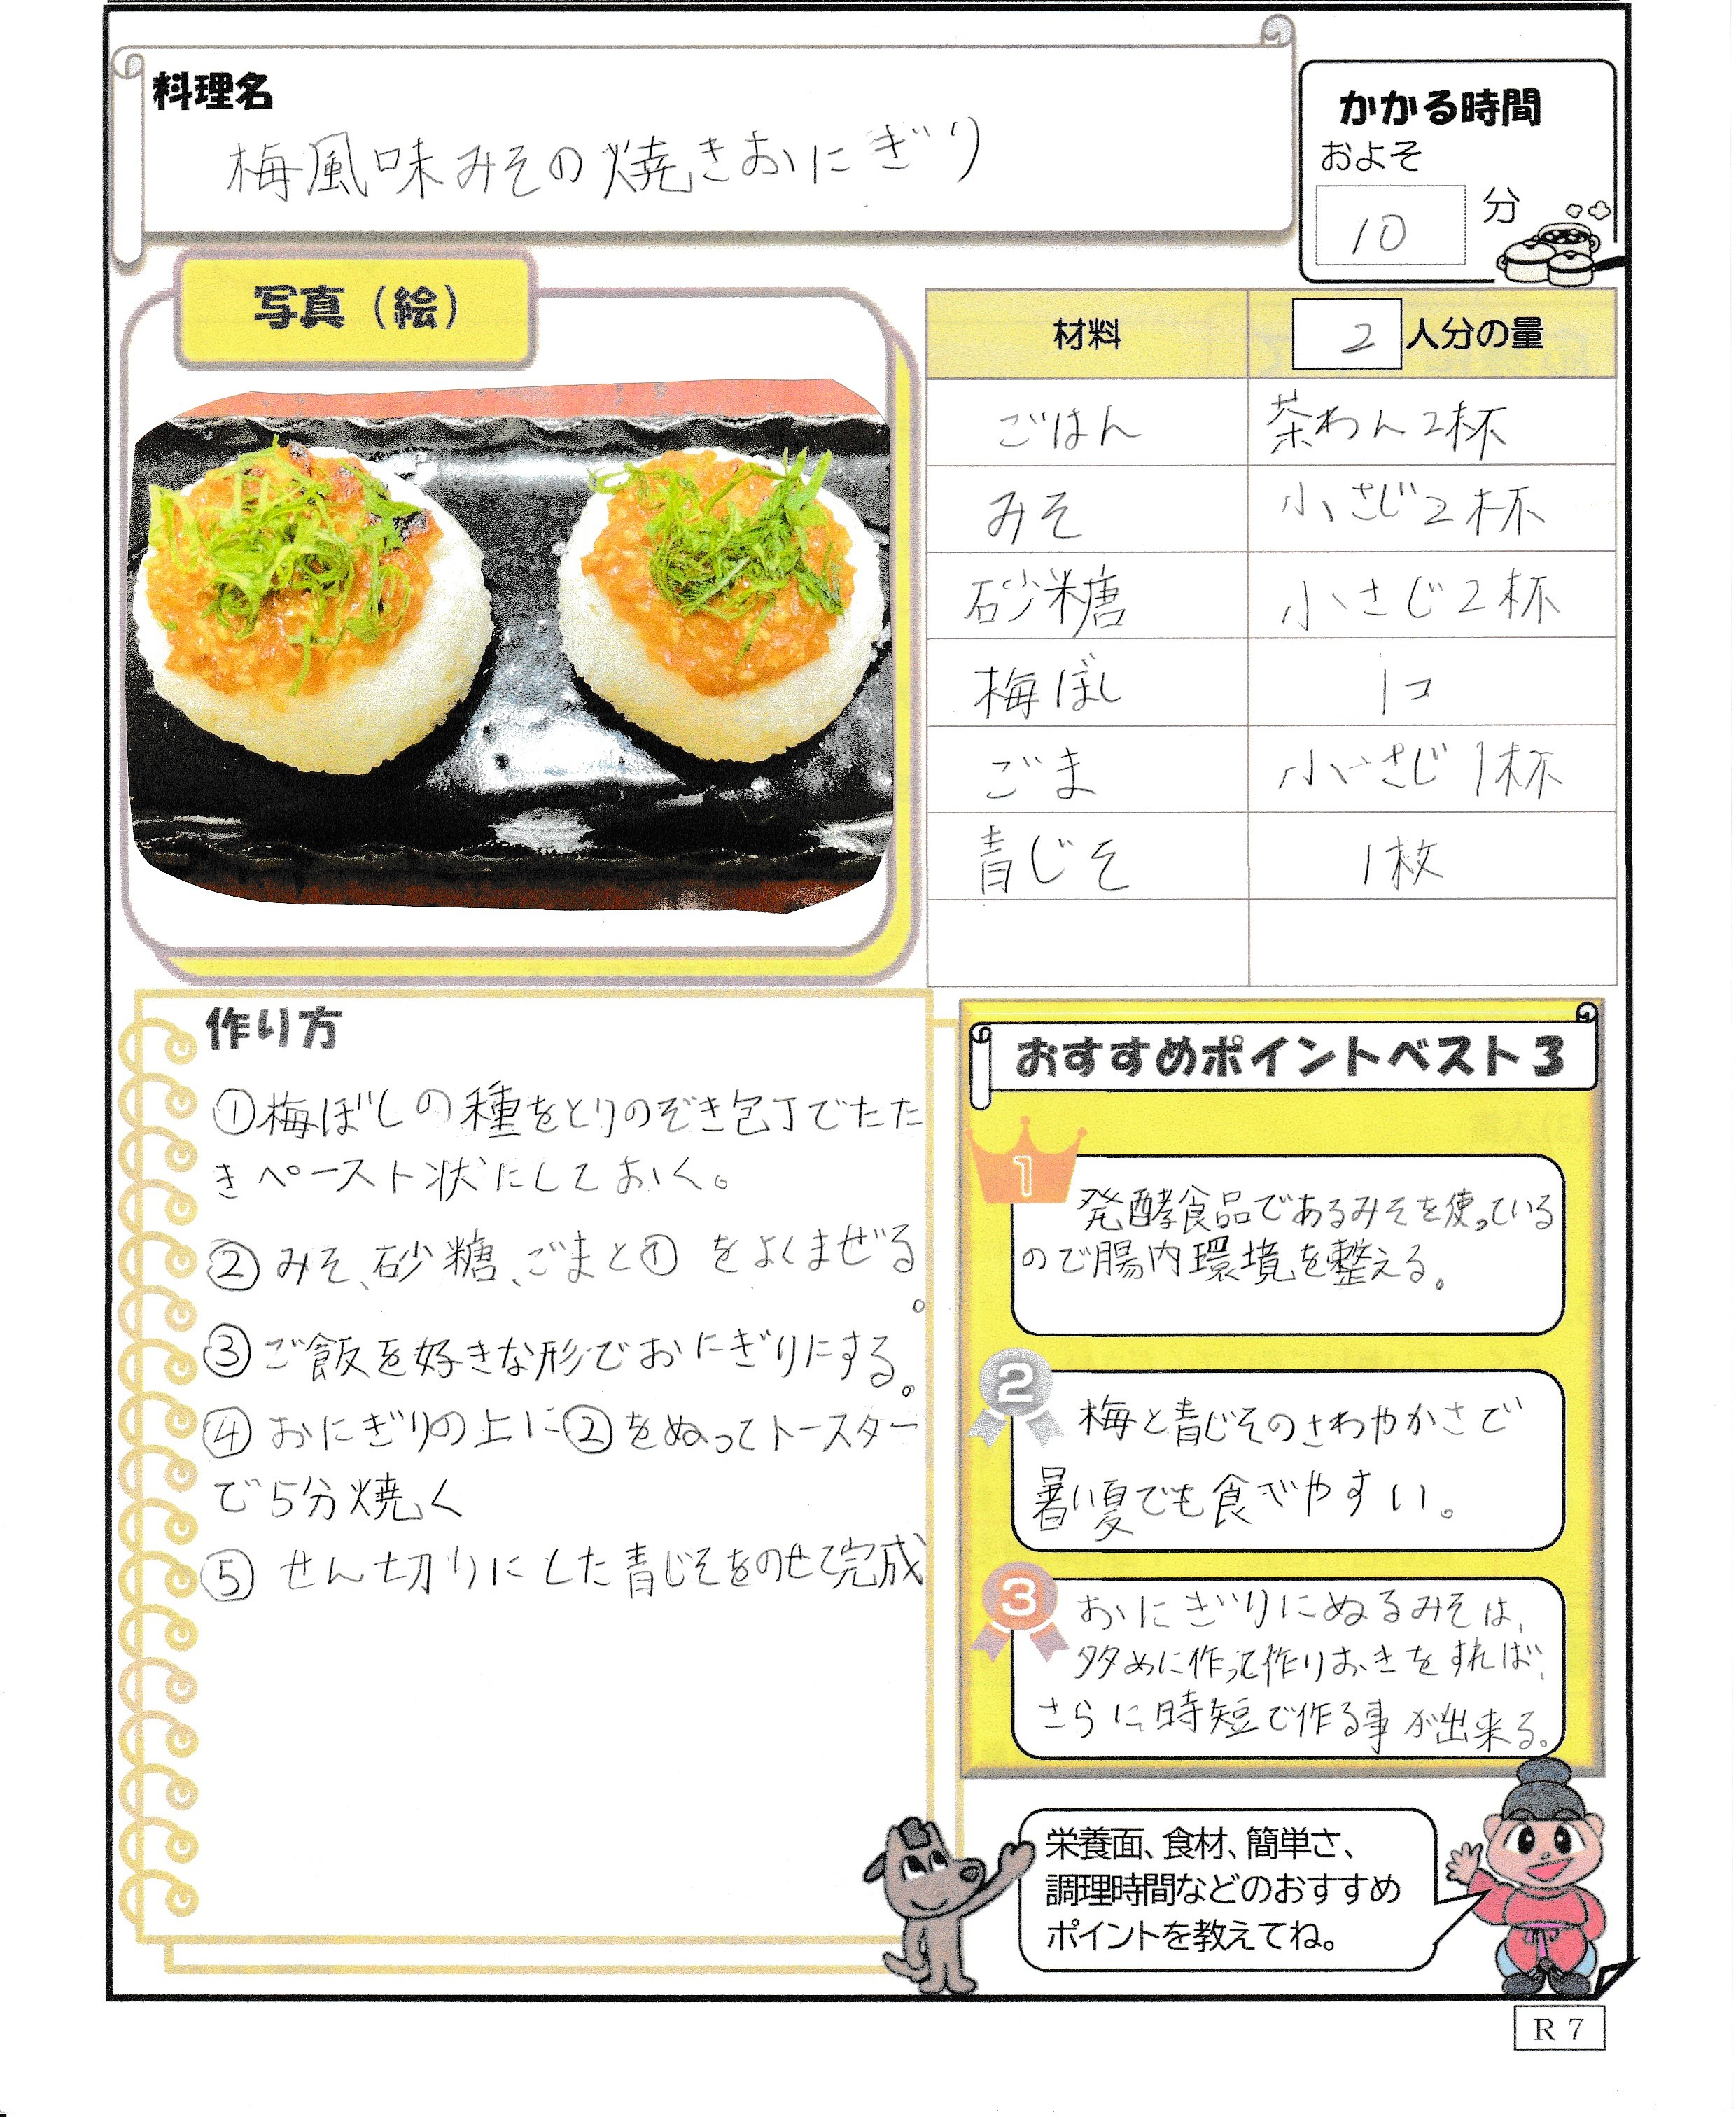 料理名
梅風味みその焼きおにぎり
かかる時間
およそ
10 分
写真（絵）
材料 2 人分の量
ごはん 茶わん2杯
みそ 小さじ2杯
砂糖 小さじ2杯
梅ぼし 1コ
ごま 小さじ1杯
青じそ 1枚
作り方
①梅ぼしの種をとりのぞき包丁でたた
きペースト状にしておく。
②みそ、砂糖、ごまと①をよくまぜる
。
③ご飯を好きな形でおにぎりにする。
④おにぎりの上に②をぬってトースター
で5分焼く
⑤せん切りにした青じそをのせて完成
おすすめポイントベスト3
1
発酵食品であるみそを使っている
ので腸内環境を整える。
2
梅と青じそのさわやかさで
暑い夏でも食べやすい。
3
おにぎりにぬるみそは、
多めに作って作りおきをすれば、
さらに時短で作る事が出来る。
栄養面、食材、簡単さ、
調理時間などのおすすめ
ポイントを教えてね。
R7